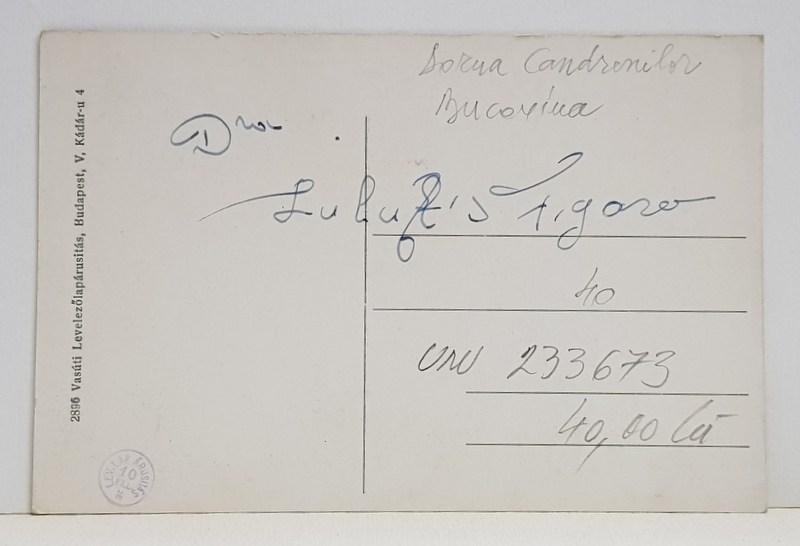 Dorna Candrenilor
Bucovina
Dra
40
UNU 233673
40,00 lei
2896 Vasúti Levelezőlapárusitás, Budapest, V, Kádár-u 4
LEV. LAP ÁRUSITÁS
10